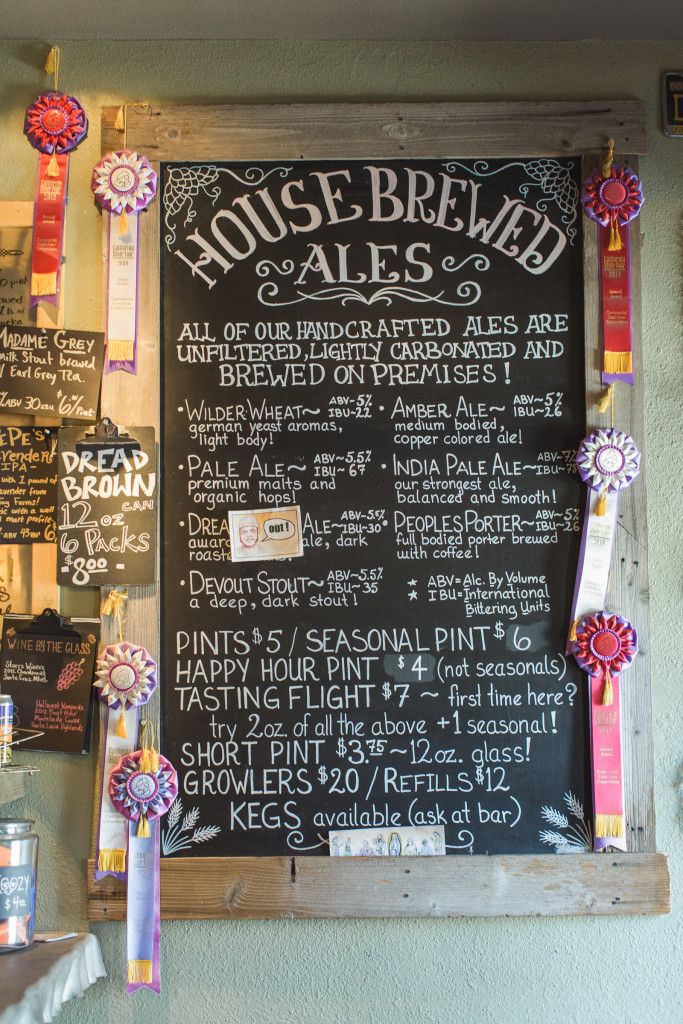 HOUSE BREWED
ALES
ALL OF OUR HANDCRAFTED ALES ARE
UNFILTERED, LIGHTLY CARBONATED AND
BREWED ON PREMISES!
• WILDER WHEAT~ ABV~5% IBU~22
german yeast aromas,
light body!
• AMBER ALE~ ABV~5% IBU~26
medium bodied,
copper colored ale!
• PALE ALE~ ABV~5.5% IBU~67
premium malts and
organic hops!
• INDIA PALE ALE~ ABV~7%
our strongest ale,
balanced and smooth!
• DREA ALE~ IBU~30
out!
awar ale, dark
roast
• PEOPLES PORTER~ ABV~5% IBU~26
full bodied porter brewed
with coffee!
• DEVOUT STOUT~ ABV~5.5% IBU~35
a deep, dark stout!
* ABV=Alc. By Volume
* IBU=International
Bittering Units
PINTS $5 / SEASONAL PINT $6
HAPPY HOUR PINT $4 (not seasonals)
TASTING FLIGHT $7 ~ first time here?
try 2oz. of all the above +1 seasonal!
SHORT PINT $3.75 ~ 12oz. glass!
GROWLERS $20 / REFILLS $12
KEGS available (ask at bar)
MADAME GREY
Milk Stout brewed
w/ Earl Grey Tea.
ABV 30 IBU $6/Pint
EPE'S
IPA-
with 1 pound of
DREAD
BROWN
12 oz CAN
6 PACKS
$8.00
WINE BY THE GLASS
2012 Chardonnay
2012 Pinot Noir
Santa Lucia Highlands
California
State Fair
2012
OOZY
$4